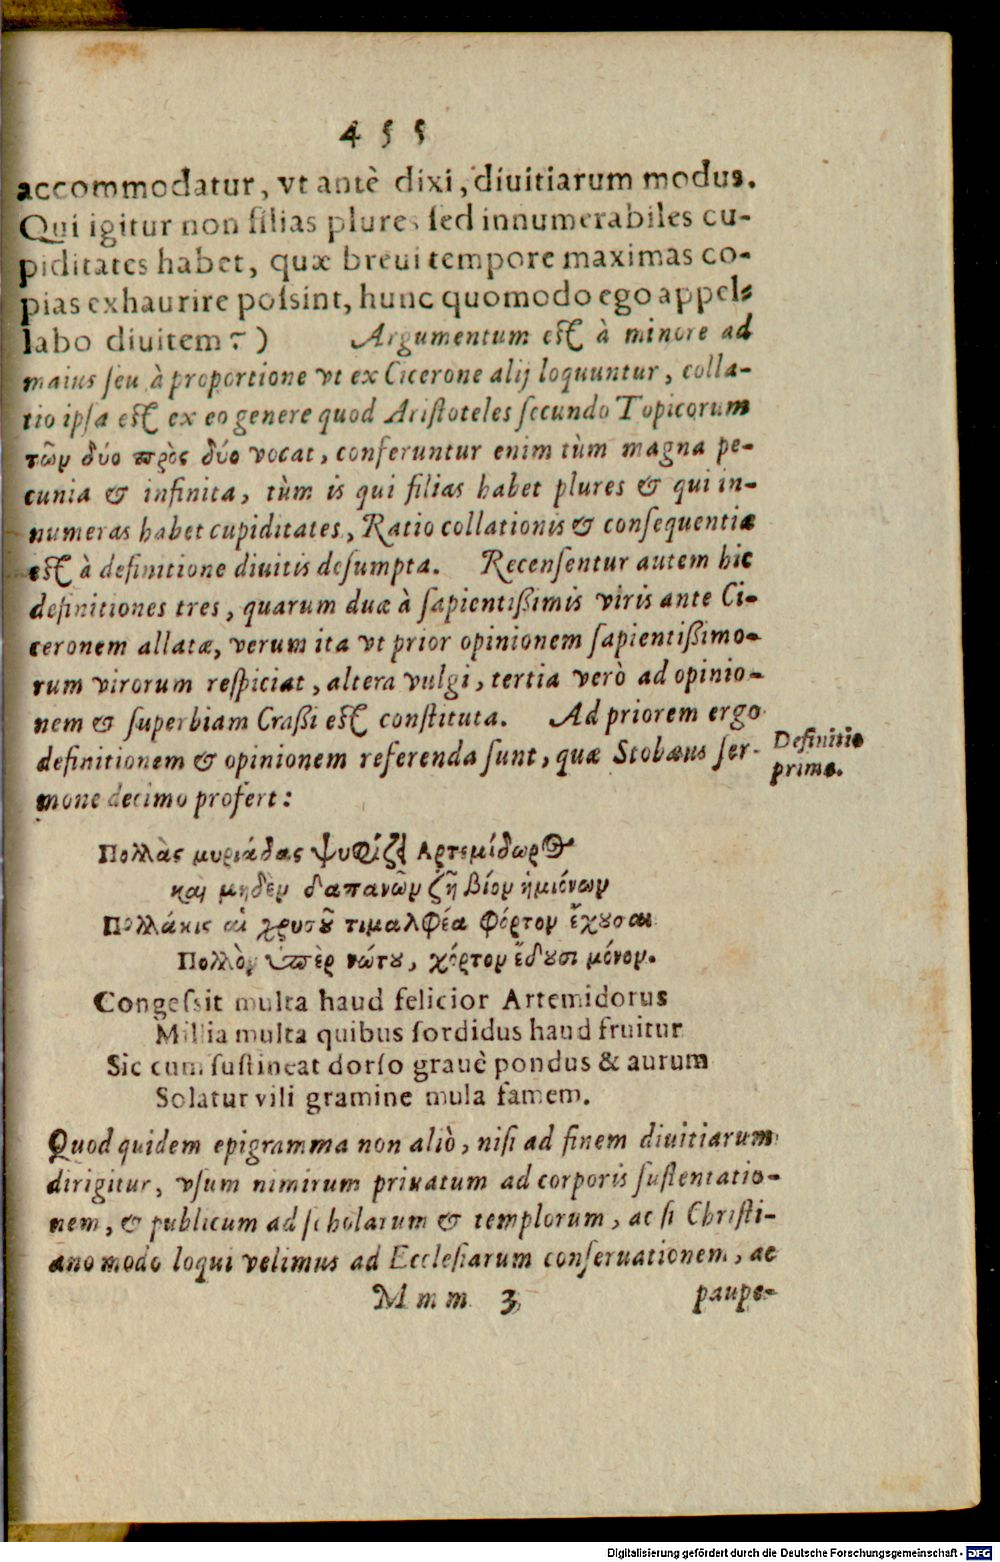 4 5 5
accommodatur, vt antè dixi, diuitiarum modus.
Qui igitur non filias plures sed innumerabiles cu-
piditates habet, quæ breui tempore maximas co-
pias exhaurire possint, hunc quomodo ego appel-
labo diuitem? ) Argumentum est à minore ad
maius seu à proportione vt ex Cicerone alij loquuntur, colla-
tio ipsa est ex eo genere quod Aristoteles secundo Topicorum
τῶν δύο πρὸς δύο vocat, conferuntur enim tùm magna pe-
cunia & infinita, tùm is qui filias habet plures & qui in-
numeras habet cupiditates, Ratio collationis & consequentiæ
est à definitione diuitis desumpta. Recensentur autem hic
definitiones tres, quarum duæ à sapientißimis viris ante Ci-
ceronem allatæ, verum ita vt prior opinionem sapientißimo-
rum virorum respiciat, altera vulgi, tertia verò ad opinio-
nem & superbiam Craßi est constituta. Ad priorem ergo
definitionem & opinionem referenda sunt, quæ Stobæus ser-
mone decimo profert:
Definitio
prima.
Πολλὰς μυριάδας ψηφίζει Αρτεμίδωρος
και μηδὲν δαπανῶν ζῇ βίον ἡμιόνων
Πολλάκις αἱ χρυσοῦ τιμαλφέα φόρτον ἔχουσαι
Πολλὸν ὑπὲρ νώτου, χόρτον ἔδουσι μόνον.
Congessit multa haud felicior Artemidorus
Millia multa quibus sordidus haud fruitur
Sic cum sustineat dorso grauè pondus & aurum
Solatur vili gramine mula famem.
Quod quidem epigramma non aliò, nisi ad finem diuitiarum
dirigitur, vsum nimirum priuatum ad corporis sustentatio-
nem, & publicum ad scholarum & templorum, ac si Christi-
ano modo loqui velimus ad Ecclesiarum conseruationem, ac
M m m 3 paupe-
Digitalisierung gefördert durch die Deutsche Forschungsgemeinschaft - DFG